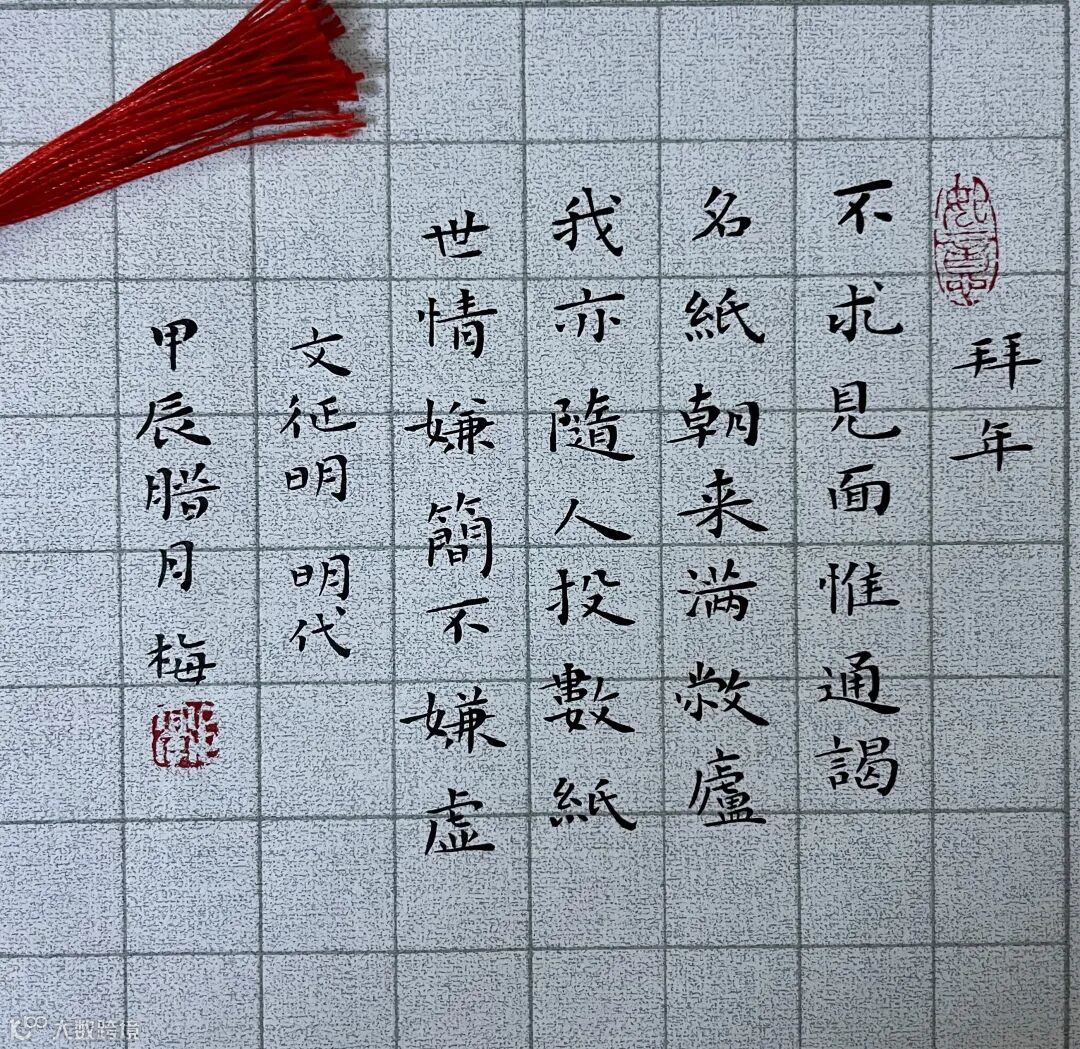 拜年
不求見面惟通謁
名紙朝来满敝廬
我亦隨人投數紙
世情嫌簡不嫌虚
文征明 明代
甲辰腊月 梅
大数跨境